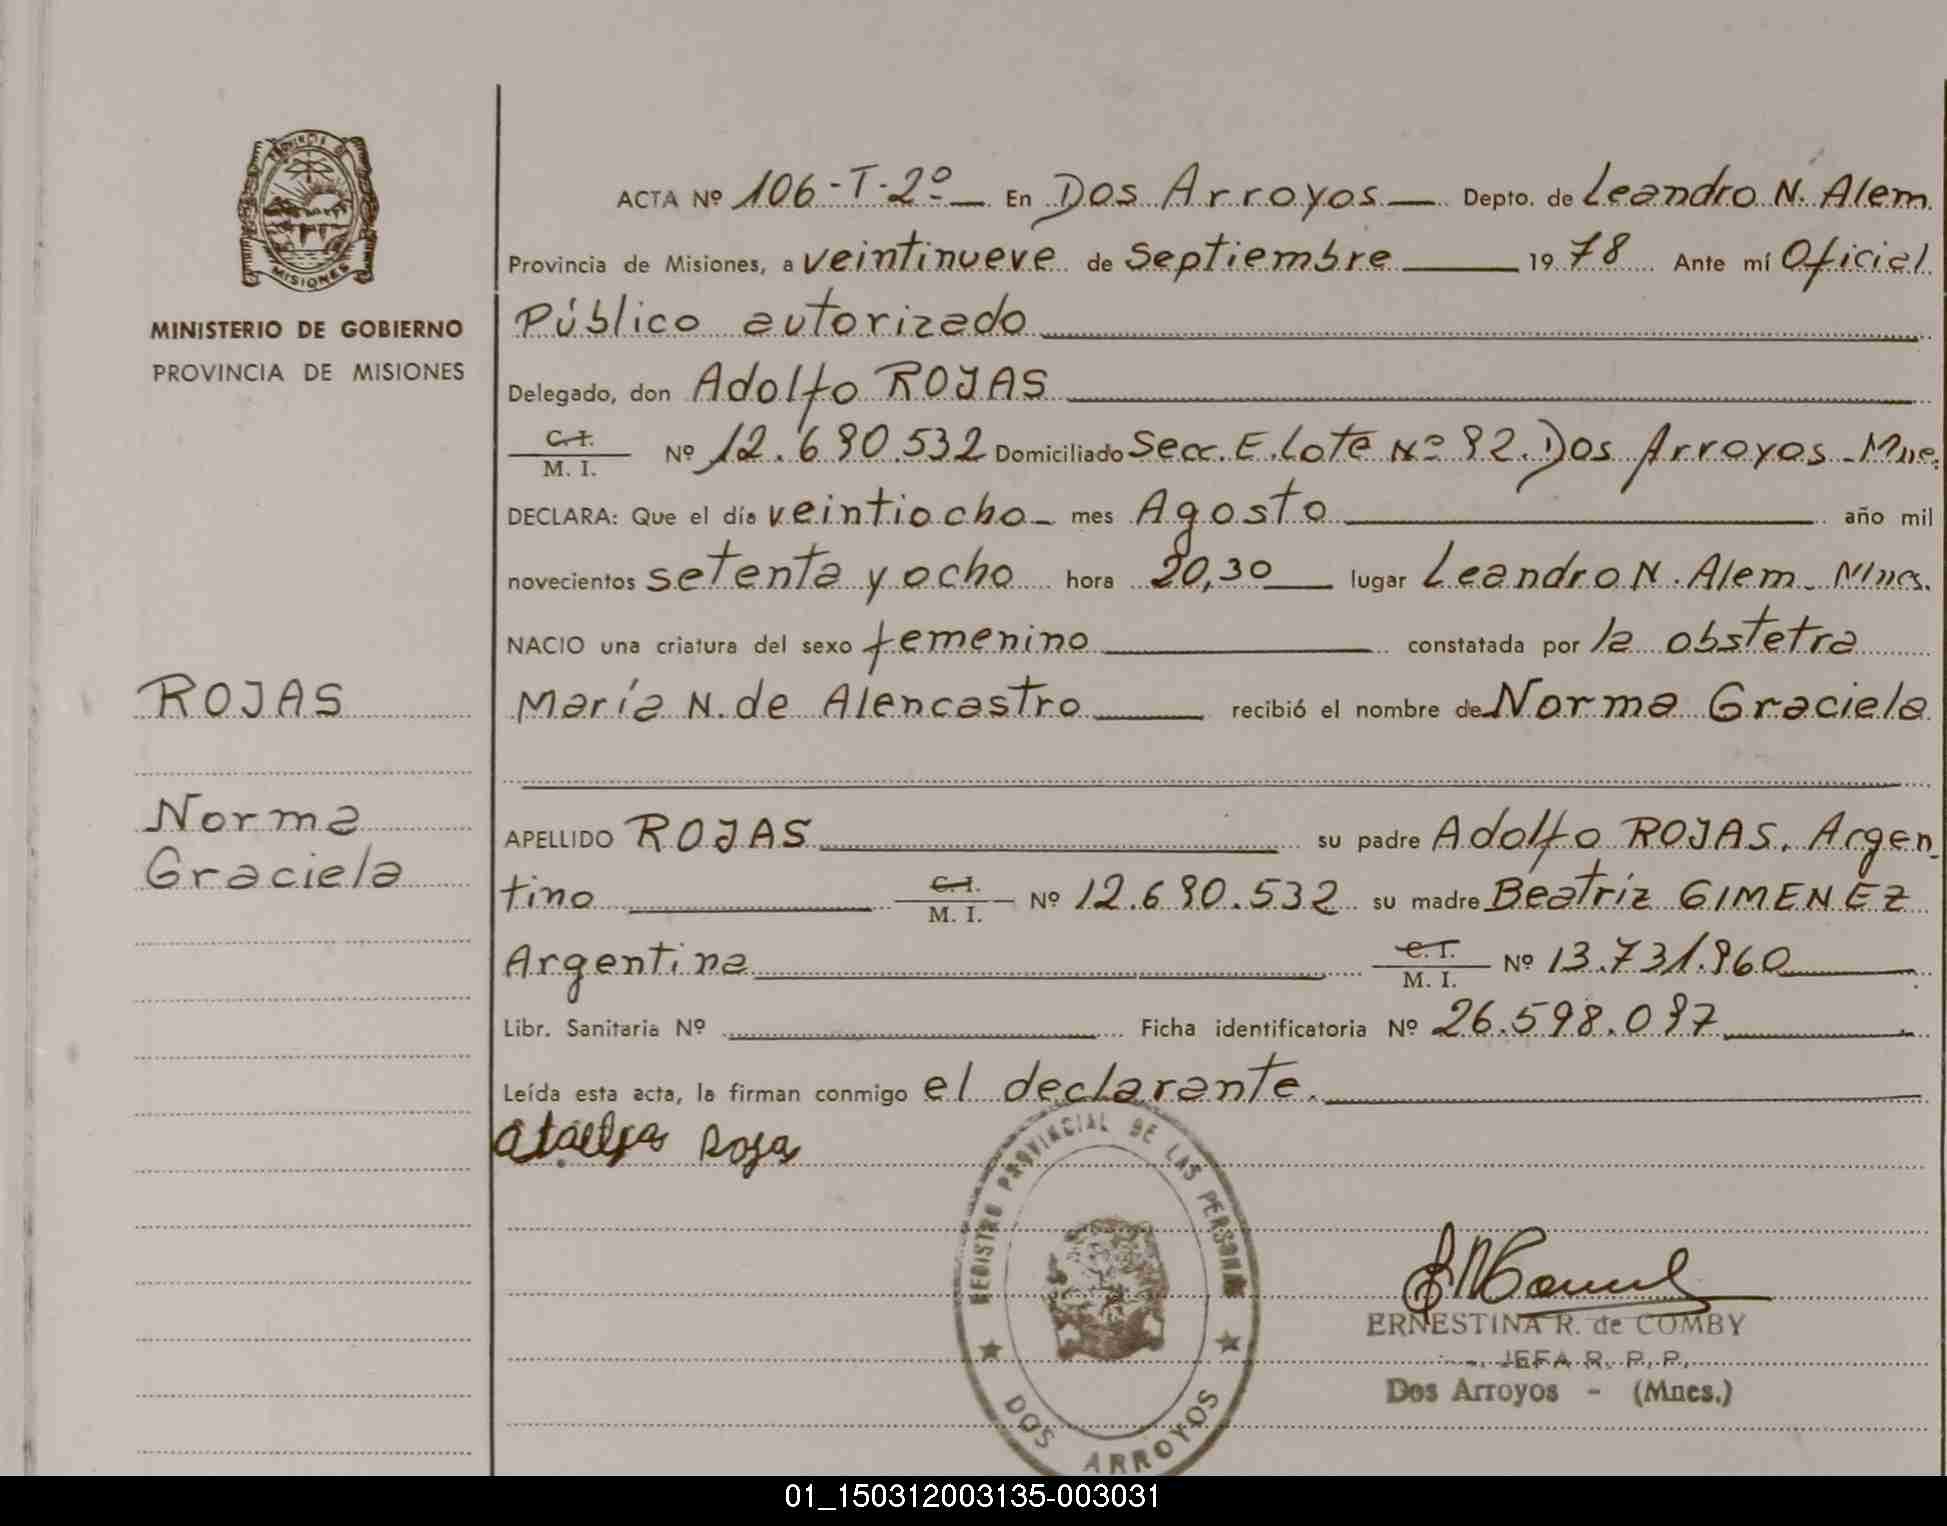 PROVINCIA DE
MISIONES
MINISTERIO DE GOBIERNO
PROVINCIA DE MISIONES
ROJAS
Norma
Graciela
ACTA Nº 106-T-2º En Dos Arroyos Depto. de Leandro N. Alem
Provincia de Misiones, a veintinueve de Septiembre 1978 Ante mí Oficial
Público autorizado
Delegado, don Adolfo ROJAS
C.I.
M. I. Nº 12.690.532 Domiciliado Secc. E. Lote Nº 92. Dos Arroyos - Mnes.
DECLARA: Que el día veintiocho mes Agosto año mil
novecientos setenta y ocho hora 20,30 lugar Leandro N. Alem - Mnes.
NACIO una criatura del sexo femenino constatada por la obstetra
María N. de Alencastro recibió el nombre de Norma Graciela
APELLIDO ROJAS su padre Adolfo ROJAS, Argen-
tino C.I. M. I. Nº 12.690.532 su madre Beatríz GIMENEZ
Argentina C.I. M. I. Nº 13.731.960
Libr. Sanitaria Nº Ficha identificatoria Nº 26.598.097
Leída esta acta, la firman conmigo el declarante.
Rojas
REGISTRO PROVINCIAL DE LAS PERSONAS
DOS ARROYOS
ERNESTINA R. de COMBY
JEFA R. P. P.
Dos Arroyos - (Mnes.)
01_150312003135-003031